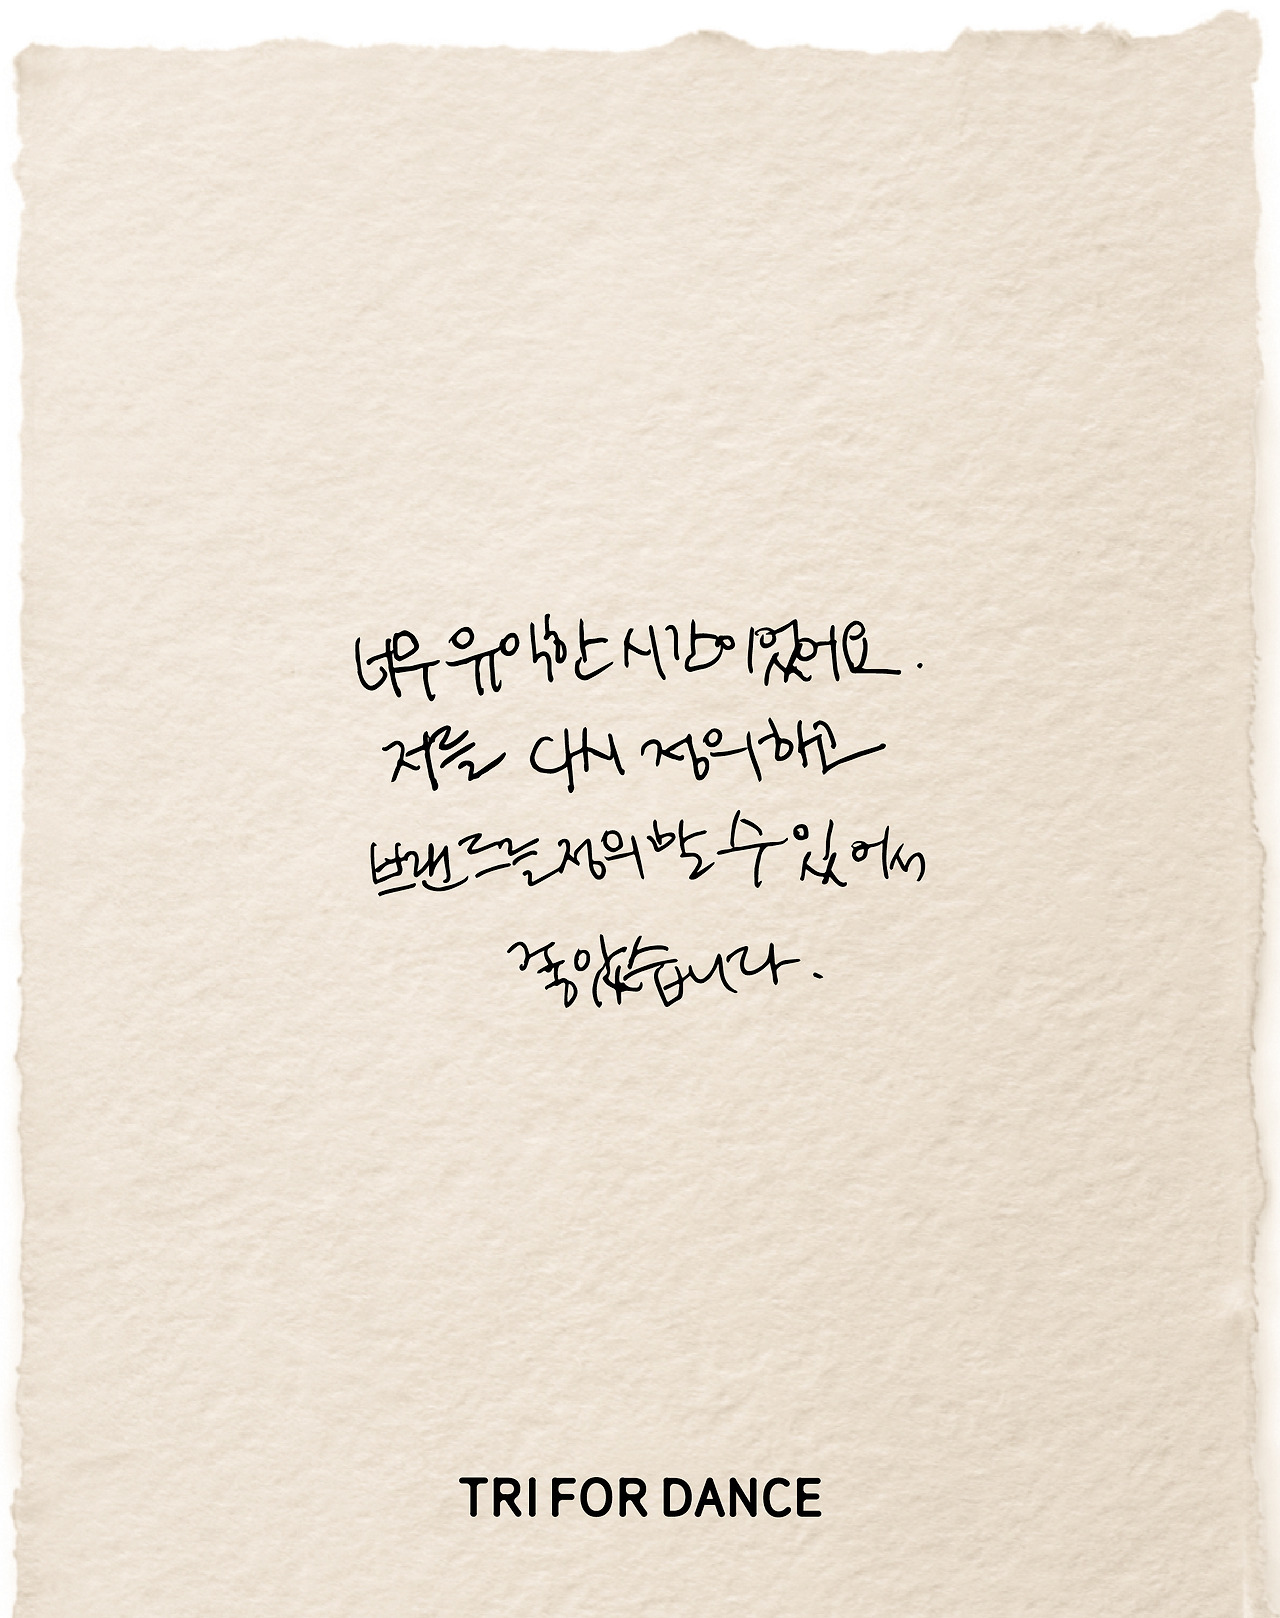 너무 유익한 시간이었어요.
저를 다시 정의하고
브랜드를 정의할 수 있어서
좋았습니다.
TRI FOR DANCE